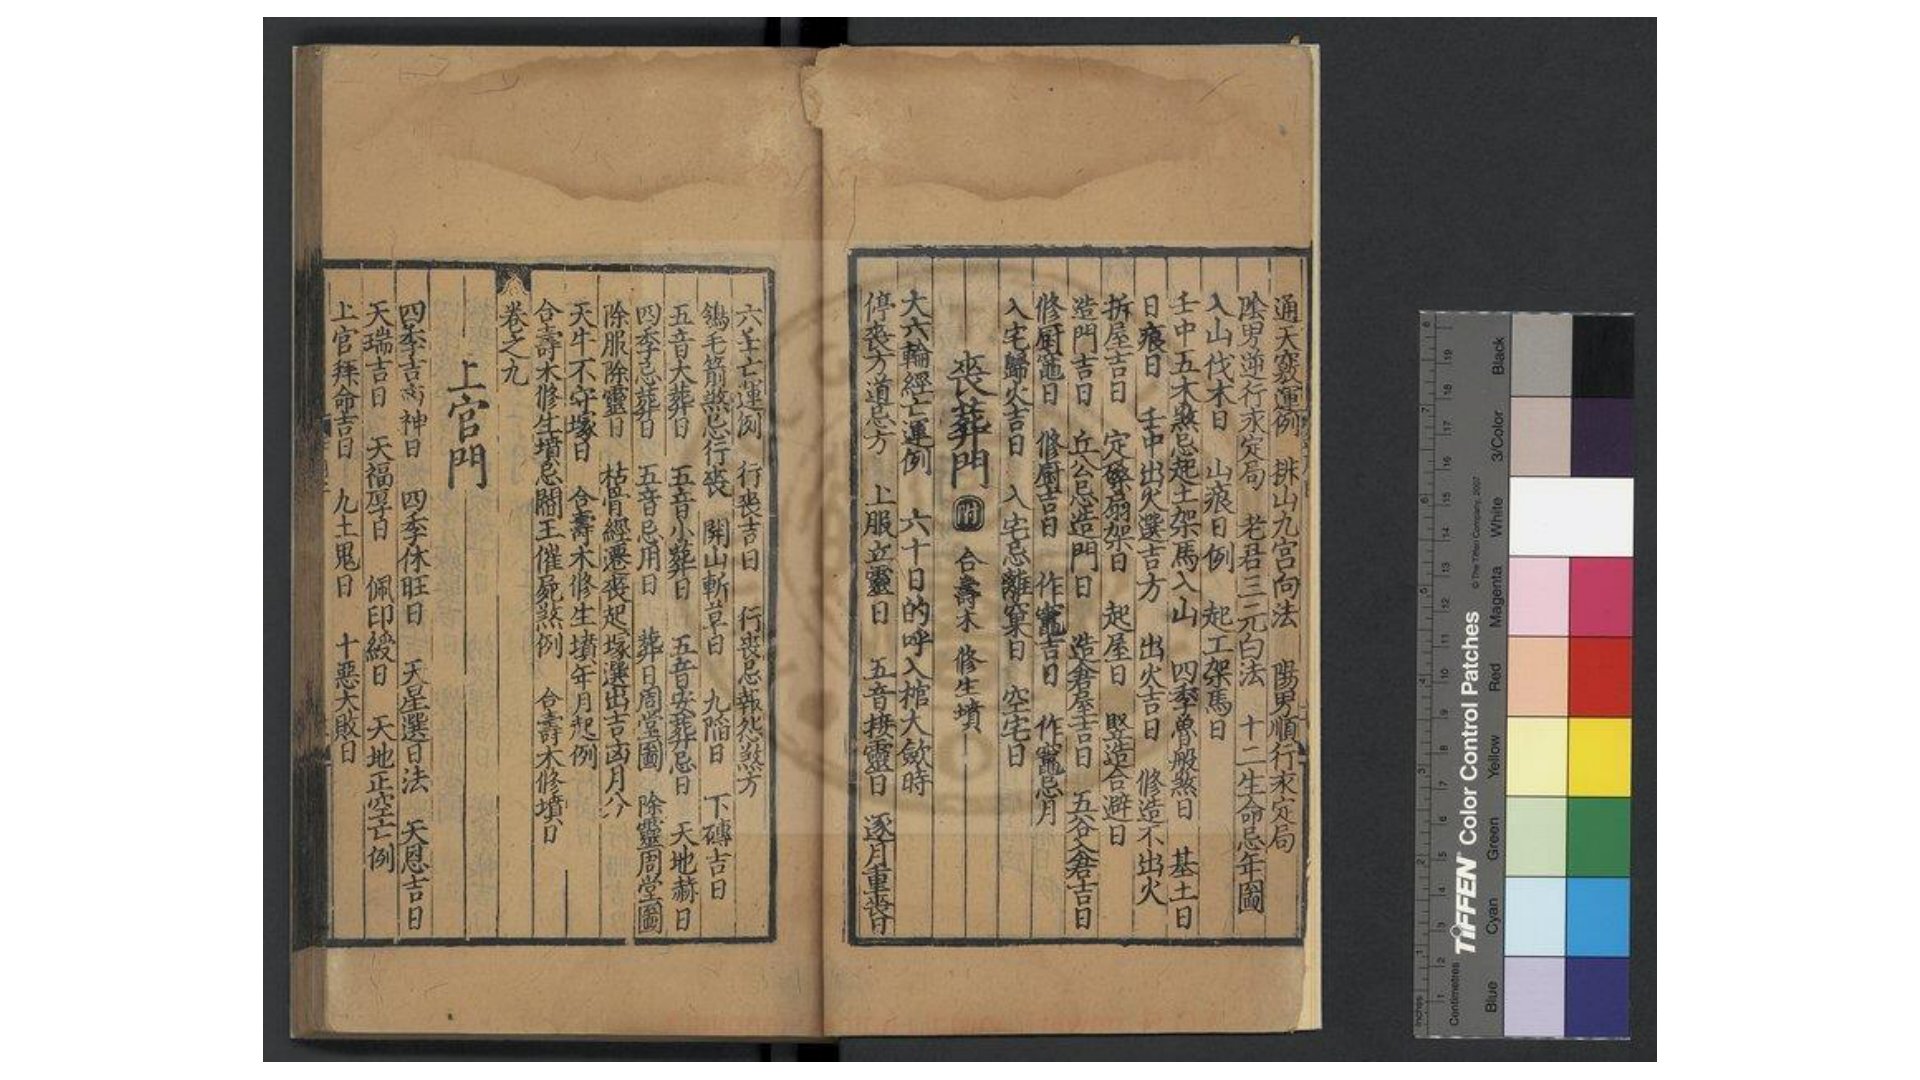 通天竅運例 排山九宮向法 陽男順行求定局
陰男逆行求定局 老君三元白法 十二生命忌年圖
入山伐木日 山痕日例 起工架馬日
壬中五木煞忌起土架馬入山 四季魯般煞日 基土日
日痕日 壬中出火選吉方 出火吉日 修造不出火
拆屋吉日 定磉扇架日 起屋日 竪造合避日
造門吉日 丘公忌造門日 造倉屋吉日 五谷入倉吉日
修厨竈日 修厨吉日 作竈吉日 作竈忌月
入宅歸火吉日 入宅忌離窠日 空宅日
喪葬門 附 合壽木 修生墳
大六輪經亡運例 六十日的呼入棺大歛時
停喪方道忌方 上服立靈日 五音接靈日 逐月重喪日
六壬亡運例 行喪吉日 行喪忌報怨煞方
鴇毛箭煞忌行喪 開山斬草日 九階日 下磚吉日
五音大葬日 五音小葬日 五音安葬忌日 天地赫日
四季忌葬日 五音忌用日 葬日周堂圖 除靈周堂圖
除服除靈日 枯骨經遷喪起塚選出吉凶月分
天牛不守塚日 合壽木修生墳年月起例
合壽木修生墳忌閻王催屍煞例 合壽木修墳日
卷之九
上官門
四季吉神日 四季休旺日 天星選日法 天恩吉日
天瑞吉日 天福厚日 佩印綬日 天地正空亡例
上官拜命吉日 九土鬼日 十惡大敗日
TIFFEN Color Control Patches
© The Tiffen Company, 2007
Inches
Centimetres
Blue
Cyan
Green
Yellow
Red
Magenta
White
3/Color
Black